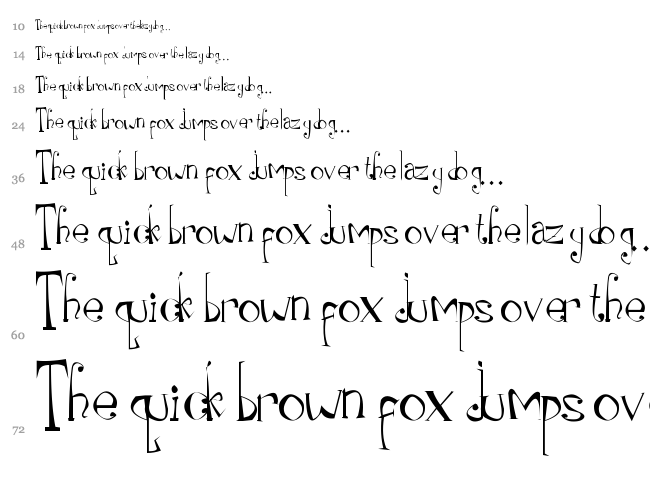 10 The quick brown fox jumps over the lazy dog...
14 The quick brown fox jumps over the lazy dog...
18 The quick brown fox jumps over the lazy dog..
24 The quick brown fox jumps over the lazy dog...
36 The quick brown fox jumps over the lazy dog...
48 The quick brown fox jumps over the lazy dog..
60 The quick brown fox jumps over the
72 The quick brown fox jumps ov